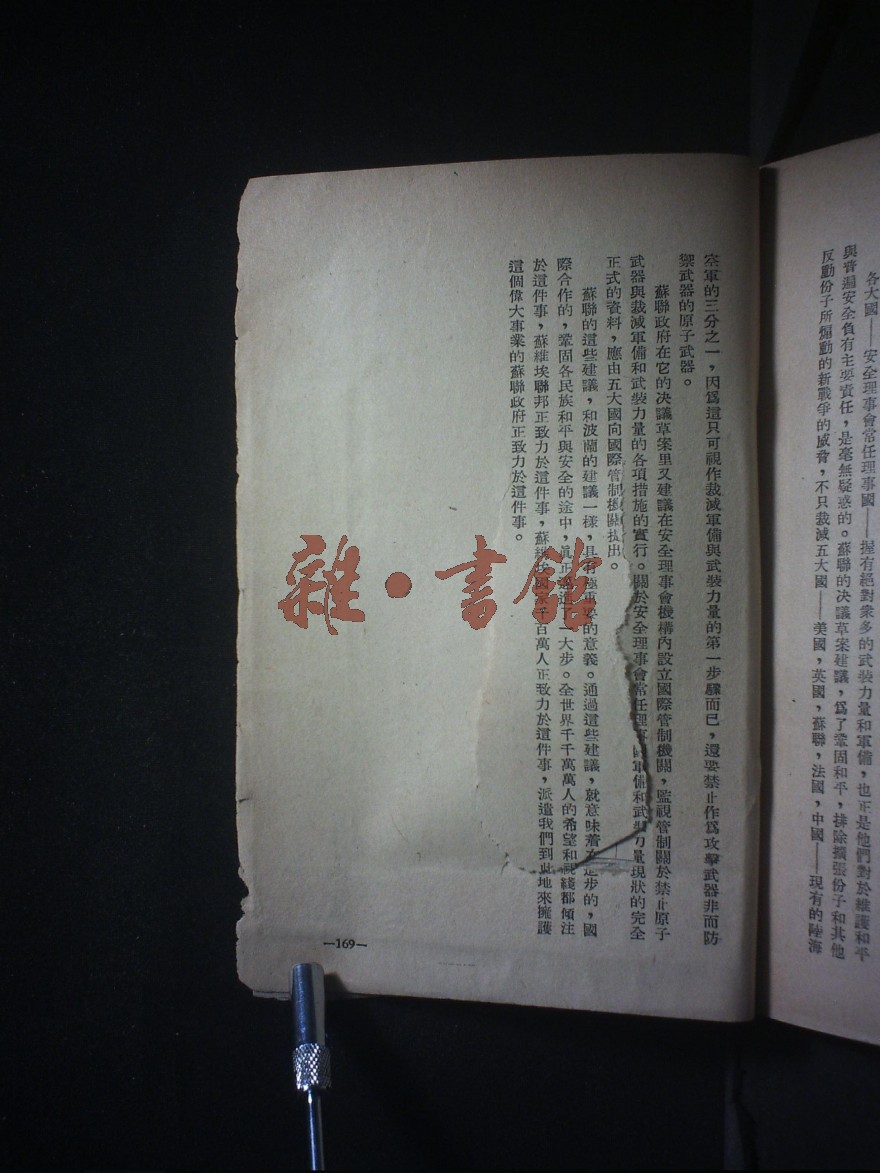 各大國——安全理事會常任理事國——握有絕對衆多的武裝力量和軍備，也正是他們對於維護和平
與普遍安全負有主要責任，是毫無疑惑的。蘇聯的决議草案建議，爲了鞏固和平，排除擴張份子和其他
反動份子所煽動的新戰爭的威脅，不只裁減五大國——美國，英國，蘇聯，法國，中國——現有的陸海
空軍的三分之一，因爲這只可視作裁減軍備與武裝力量的第一步驟而已，還要禁止作爲攻擊武器非而防
禦武器的原子武器。
蘇聯政府在它的决議草案里又建議在安全理事會機構內設立國際管制機關，監視管制關於禁止原子
武器與裁減軍備和武裝力量的各項措施的實行。關於安全理事會常任理事國軍備和武裝力量現狀的完全
正式的資料，應由五大國向國際管制機關提出。
蘇聯的這些建議，和波蘭的建議一樣，具有極重要的意義。通過這些建議，就意味着在進步的，國
際合作的，鞏固各民族和平與安全的途中，眞正邁進了一大步。全世界千千萬萬人的希望和視綫都傾注
於這件事，蘇維埃聯邦正致力於這件事，蘇維埃國家千百萬人正致力於這件事，派遣我們到此地來擁護
這個偉大事業的蘇聯政府正致力於這件事。
—169—
雜·書館